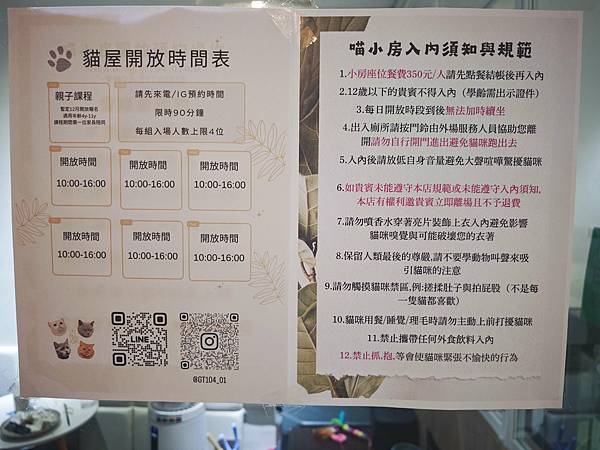 貓屋開放時間表
親子課程
暫定12月開放報名
適用年齡4y-11y
課程期間需一位家長陪同
請先來電/IG預約時間
限時90分鐘
每組入場人數上限4位
開放時間
10:00-16:00
開放時間
10:00-16:00
開放時間
10:00-16:00
開放時間
10:00-16:00
開放時間
10:00-16:00
開放時間
10:00-16:00
LINE
@GT104_01
喵小房入內須知與規範
1.小房座位餐費350元/人請先點餐結帳後再入內
2.12歲以下的貴賓不得入內（學齡需出示證件）
3.每日開放時段到後無法加時續坐
4.出入廁所請按門鈴由外場服務人員協助您離
開請勿自行開門進出避免貓咪跑出去
5.入內後請放低自身音量避免大聲喧嘩驚擾貓咪
6.如貴賓未能遵守本店規範或未能遵守入內須知,
本店有權利邀貴賓立即離場且不予退費
7.請勿噴香水穿著亮片裝飾上衣入內避免影響
貓咪嗅覺與可能破壞您的衣著
8.保留人類最後的尊嚴,請不要學動物叫聲來吸
引貓咪的注意
9.請勿觸摸貓咪禁區,例:搓揉肚子與拍屁股（不是每
一隻貓都喜歡）
10.貓咪用餐/睡覺/理毛時請勿主動上前打擾貓咪
11.禁止攜帶任何外食飲料入內
12.禁止抓.抱.等會使貓咪緊張不愉快的行為